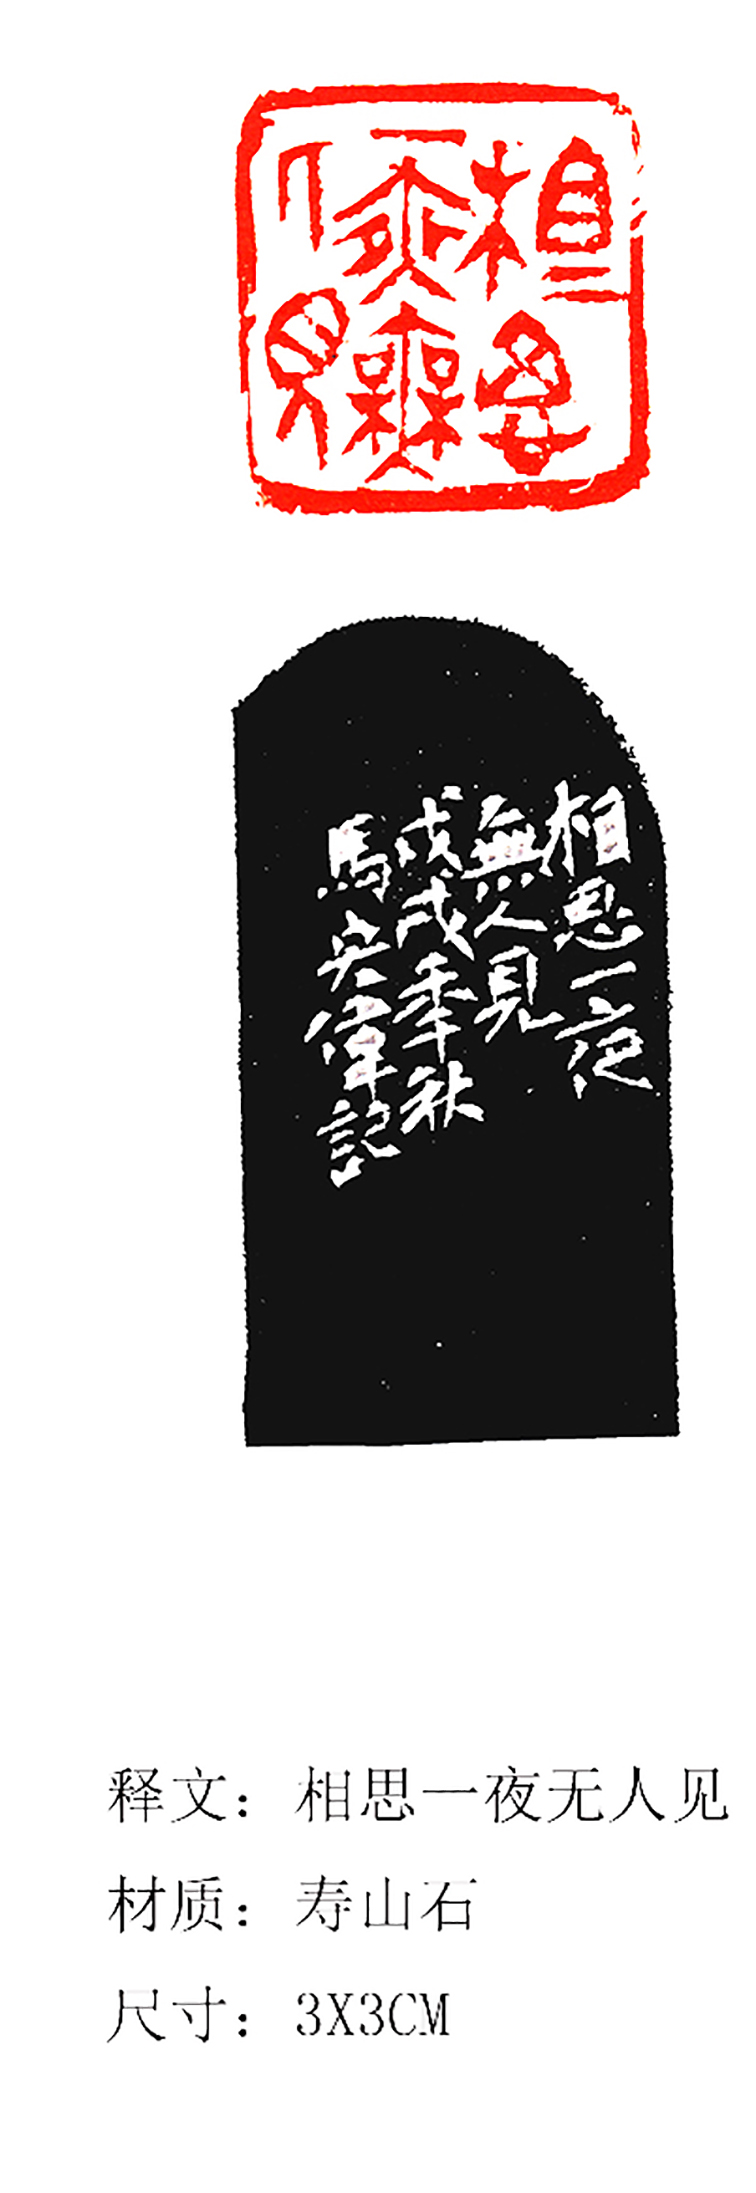 相思
一夜無
人見
相思一夜
無人見
戊戌季秋
馬宏偉記
释文：相思一夜无人见
材质：寿山石
尺寸：3X3CM